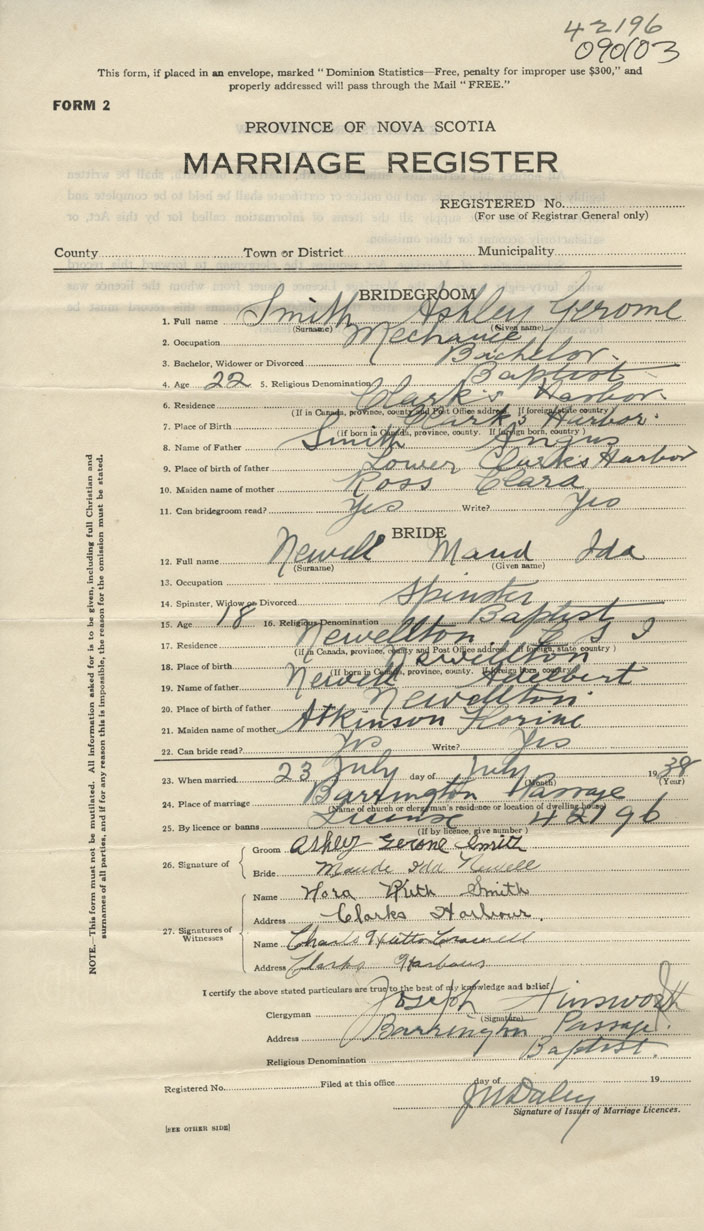 42196
090103
This form, if placed in an envelope, marked "Dominion Statistics—Free, penalty for improper use $300," and
properly addressed will pass through the Mail "FREE."
FORM 2
PROVINCE OF NOVA SCOTIA
MARRIAGE REGISTER
REGISTERED No.
(For use of Registrar General only)
County Town or District Municipality
BRIDEGROOM
1. Full name Smith Ashley Gerome
(Surname) (Given name)
2. Occupation Mechanic
3. Bachelor, Widower or Divorced Bachelor
4. Age 22 5. Religious Denomination Baptist
6. Residence Clark's Harbor
(If in Canada, province, county and Post Office address. If foreign, state country)
7. Place of Birth Clark's Harbor
(If born in Canada, province, county. If foreign born, country)
8. Name of Father Smith Angus
9. Place of birth of father Lower Clark's Harbor
10. Maiden name of mother Ross Clara
11. Can bridegroom read? Yes Write? Yes
BRIDE
12. Full name Newell Maud Ida
(Surname) (Given name)
13. Occupation
14. Spinster, Widow or Divorced Spinster
15. Age 18 16. Religious Denomination Baptist
17. Residence Newellton C S I
(If in Canada, province, county and Post Office address. If foreign, state country)
18. Place of birth Newellton
(If born in Canada, province, county. If foreign born, country)
19. Name of father Newell Adelbert
20. Place of birth of father Newellton
21. Maiden name of mother Atkinson Florine
22. Can bride read? Yes Write? Yes
23. When married 23 July day of July 1938
(Month) (Year)
24. Place of marriage Barrington Passage
(Name of church or clergyman's residence or location of dwelling house)
25. By licence or banns License 42196
(If by licence, give number)
26. Signature of Groom Ashley Gerome Smith
Bride Maude Ida Newell
27. Signatures of Witnesses
Name Nora Ruth Smith
Address Clarks Harbour.
Name Charls
Address Clarks Harbour
I certify the above stated particulars are true to the best of my knowledge and belief.
Clergyman Joseph Ainsworth
(Signature)
Address Barrington Passage.
Religious Denomination Baptist.
Registered No. Filed at this office day of 19
J M Daley
Signature of Issuer of Marriage Licences.
[SEE OTHER SIDE]
NOTE.—This form must not be mutilated. All information asked for is to be given, including full Christian and
surnames of all parties, and if for any reason this is impossible, the reason for the omission must be stated.